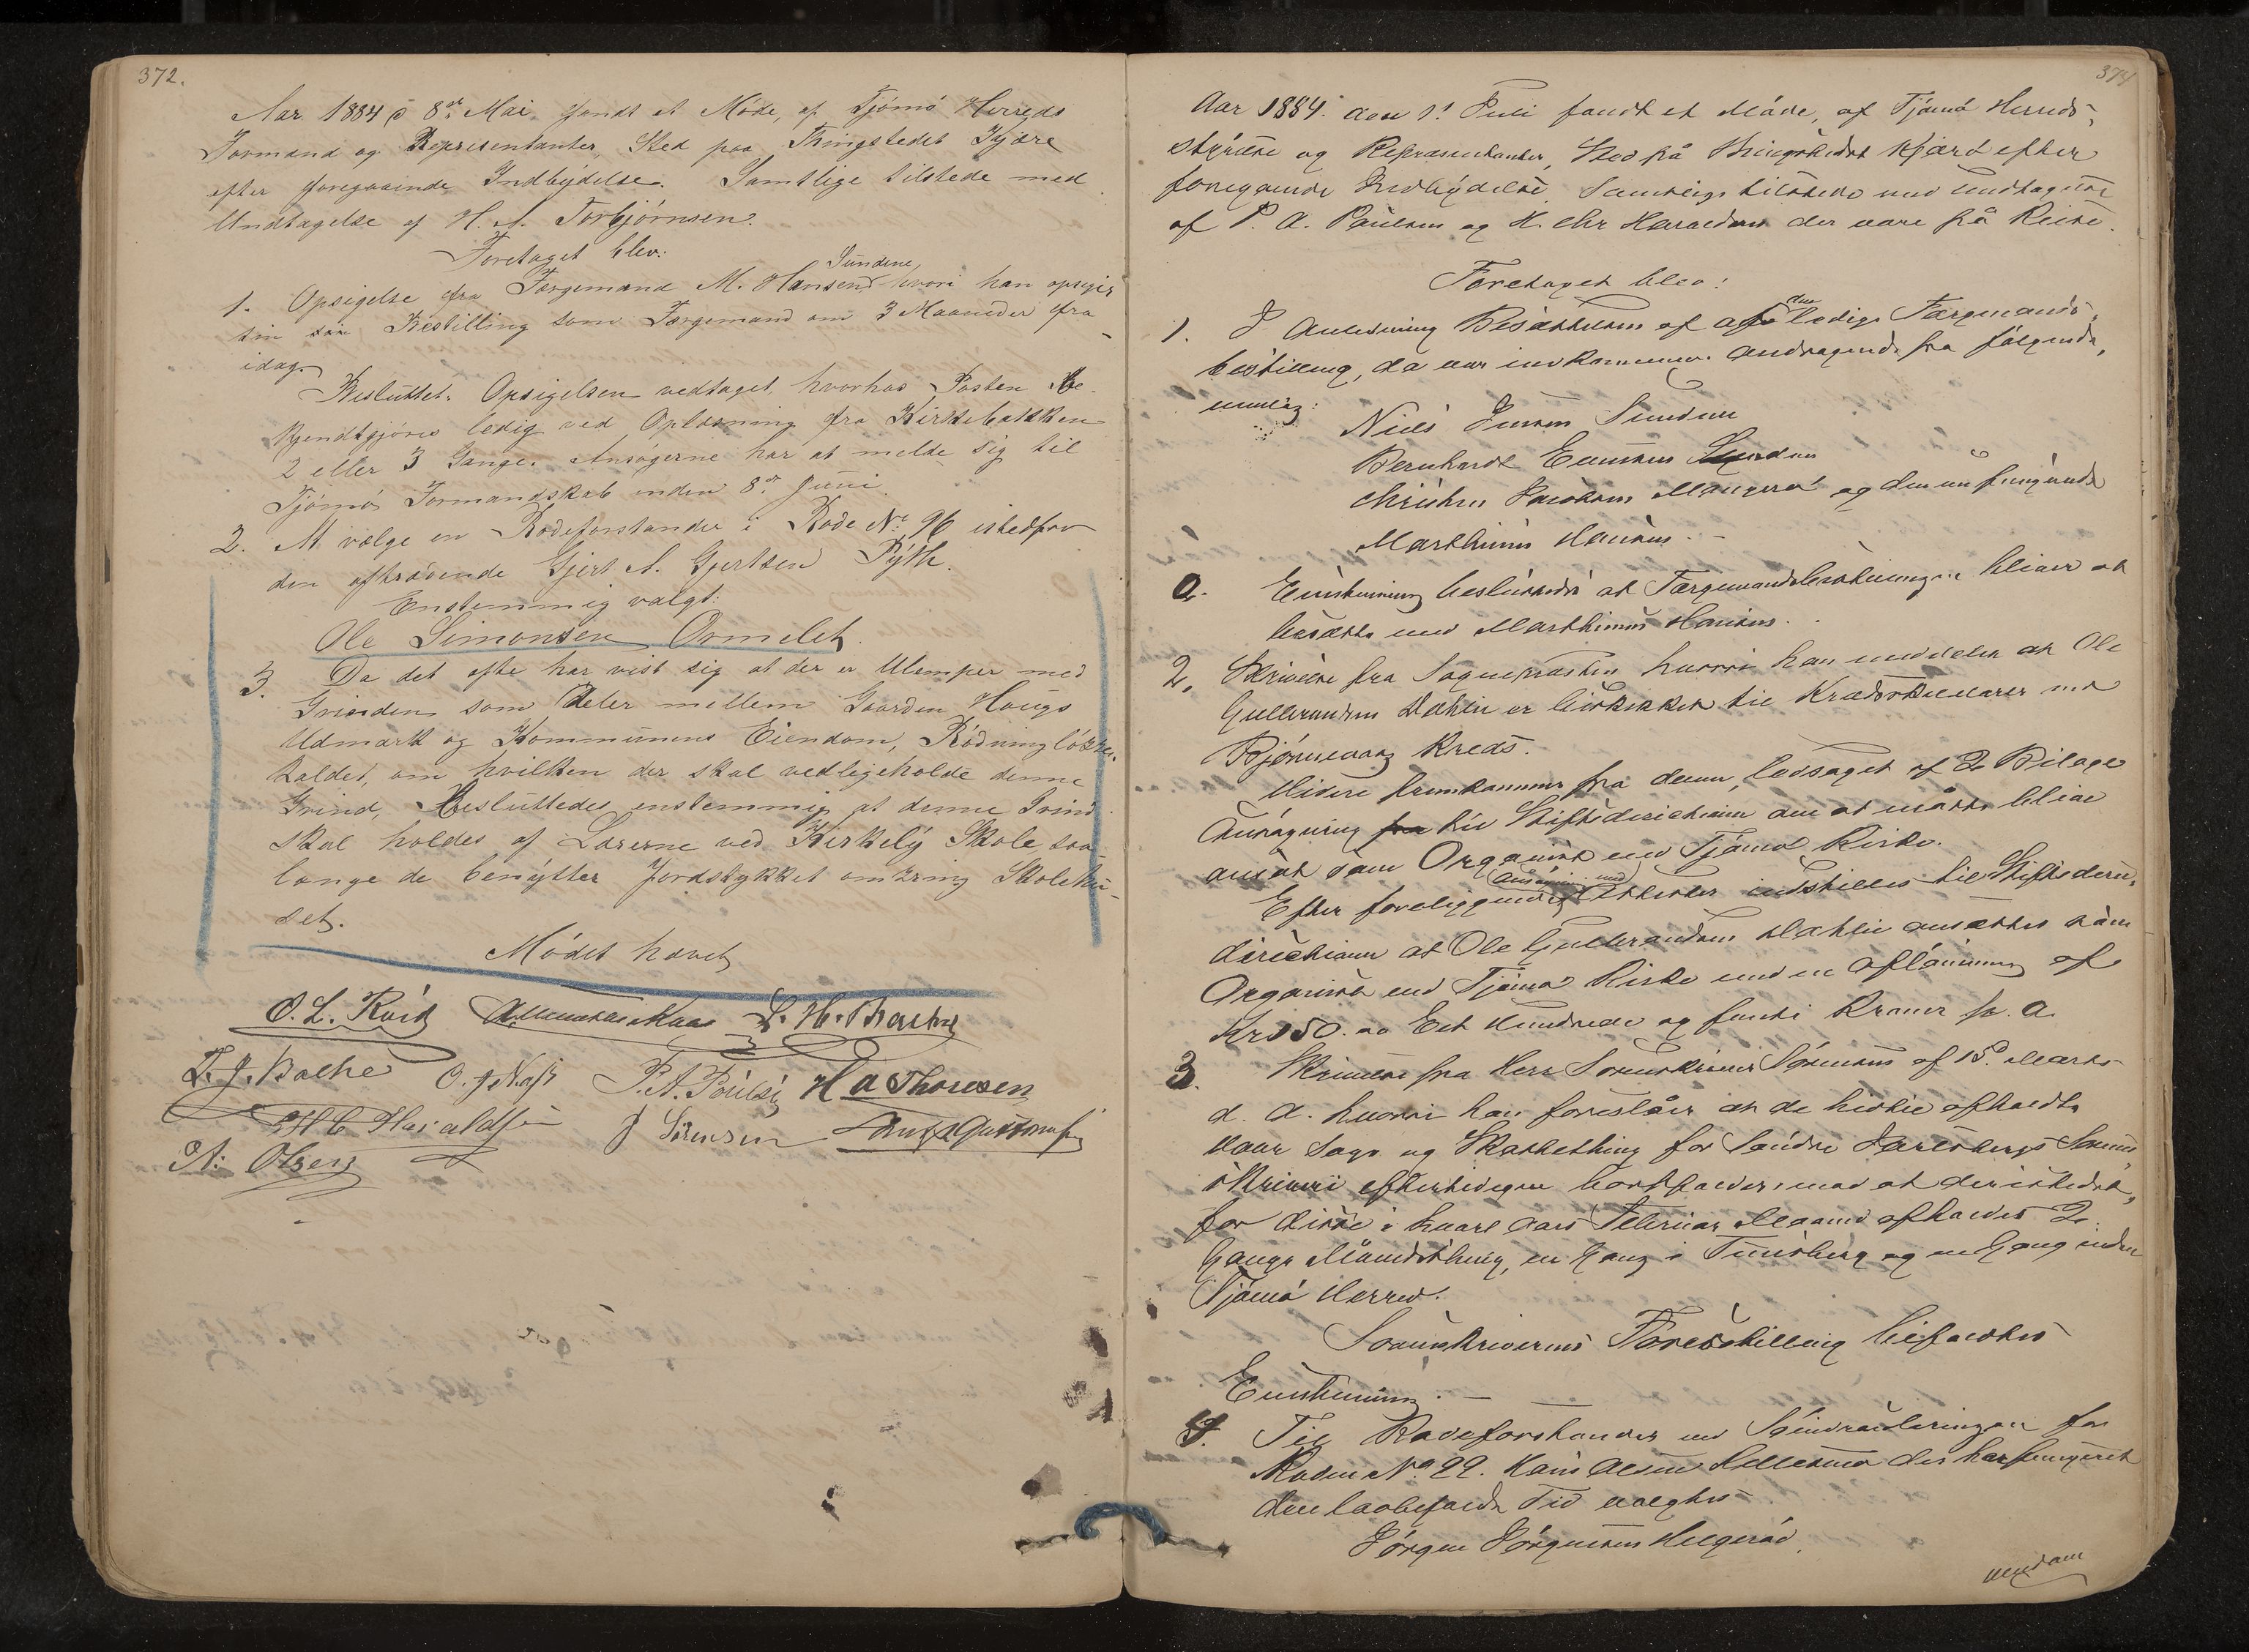 372.
Aar 1884 d 8de Mai fandt et Møde, af Tjømø Herreds
Formænd og Representanter, Sted paa Thingstedet Kjære
efter foregaaende Indbydelse. Samtlige tilstede med
Undtagelse af H. A. Torbjørnsen.
Foretaget blev:
1. Opsigelse fra Færgemand M. Hansen Sundene, hvori han opsiger
sin Bestilling som Færgemand om 3 Maaneder fra
idag.
Besluttet: Opsigelsen vedtaget, hvorhos Posten be-
kjendtgjøres ledig ved Oplæsning fra Kirkebakken
2 eller 3 Gange. Ansøgerne har at melde sig til
Tjømø Formandskab inden 8de Juni.
2. At vælge en Rodeforstander i Rode No 96 istedfor
den aftrædende Gjert A. Gjertsen Pyth.
Enstemmig valgt:
Ole Simonsen Ormelet.
3. Da det ofte har vist sig at der er Ulemper med
Grinden som deler mellem Gaarden Hougs
Udmark og Kommunens Eiendom, Rødningløkken
kaldet, om hvilken der skal vedligeholde denne
Grind, besluttedes enstemmig at denne Grind
skal holdes af Lærerne ved Kirkely Skole saa-
længe de benytter Jordstykket omkring Skolehu-
set.
Mødet hævet
O. L. Røed L. H. Bache
L. J. Bache O. J. Næss P. A. Poulsen H A Thoresen
H C Haraldsen J Sørensen
A. Olsen
374
Aar 1884 den 1ste Juli fandt et Møde, af Tjømø Herreds-
styrelse og Repræsentanter, Sted på Thingstedet Kjære efter
foregaaende Indbydelse. Samtlige tilstede med Undtagelse
af P. A. Paulsen og H. Chr Haraldsen der vare på Reise.
Foretaget blev:
1. I Anledning Besættelsen af den ledige Færgemands-
bestilling, da var indkommen Andragende fra følgende,
nemlig:
Niels Jensen Sundene
Bernhardt Evensen Sundene
Christen Jacobsen Maugerø og den nu fungerende
Marthinus Hansen.
a. Enstemmig besluttedes at Færgemandsbestillingen bliver at
besætte med Marthinus Hansen.
2. Skrivelse fra Sognepræsten hvori han meddeler at Ole
Gulbrandsen Dæhlie er beskikket til Kredsskolelærer ved
Bjørnevaag Kreds.
Videre fremkommer fra denne, ledsaget af 2 Bilage
Ansøgning til Stiftsdirectionen om at måtte blive
ansat som Organist ved Tjømø Kirke.
Efter foreliggende Ansøgning med Attester indstilles til Stifts-
directionen at Ole Gulbrandsen Dæhlie ansættes som
Organist ved Tjømø Kirke med en Aflønning af
Kr 150. – Eet Hundrede og femti Kroner pr. A.
3. Skrivelse fra Herr Sorenskriver Sørensen af 15d Marts
d. A. hvori han foreslåer at de hidtil afholdte
Vaar Sage og Skattething for Søndre Jarlsbergs Soren-
skriveri eftertidigen bortfalder, mod at der istedet-
for disse i hvert Aars Februar Maaned afholdes 2
Gange Måndsthing, en Gang i Tønsberg og en Gang inden
Tjømø Herred.
Sorenskriverens Forestilling bifaldtes
Eenstemmig. –
4. Til Rodeforstander ved Sundrouleringen for
Roden No 22. Hans Olsen Hellesmo der har fungeret
den lovbefalede Tid valgtes
Jørgen Jørgensen Helgerød.